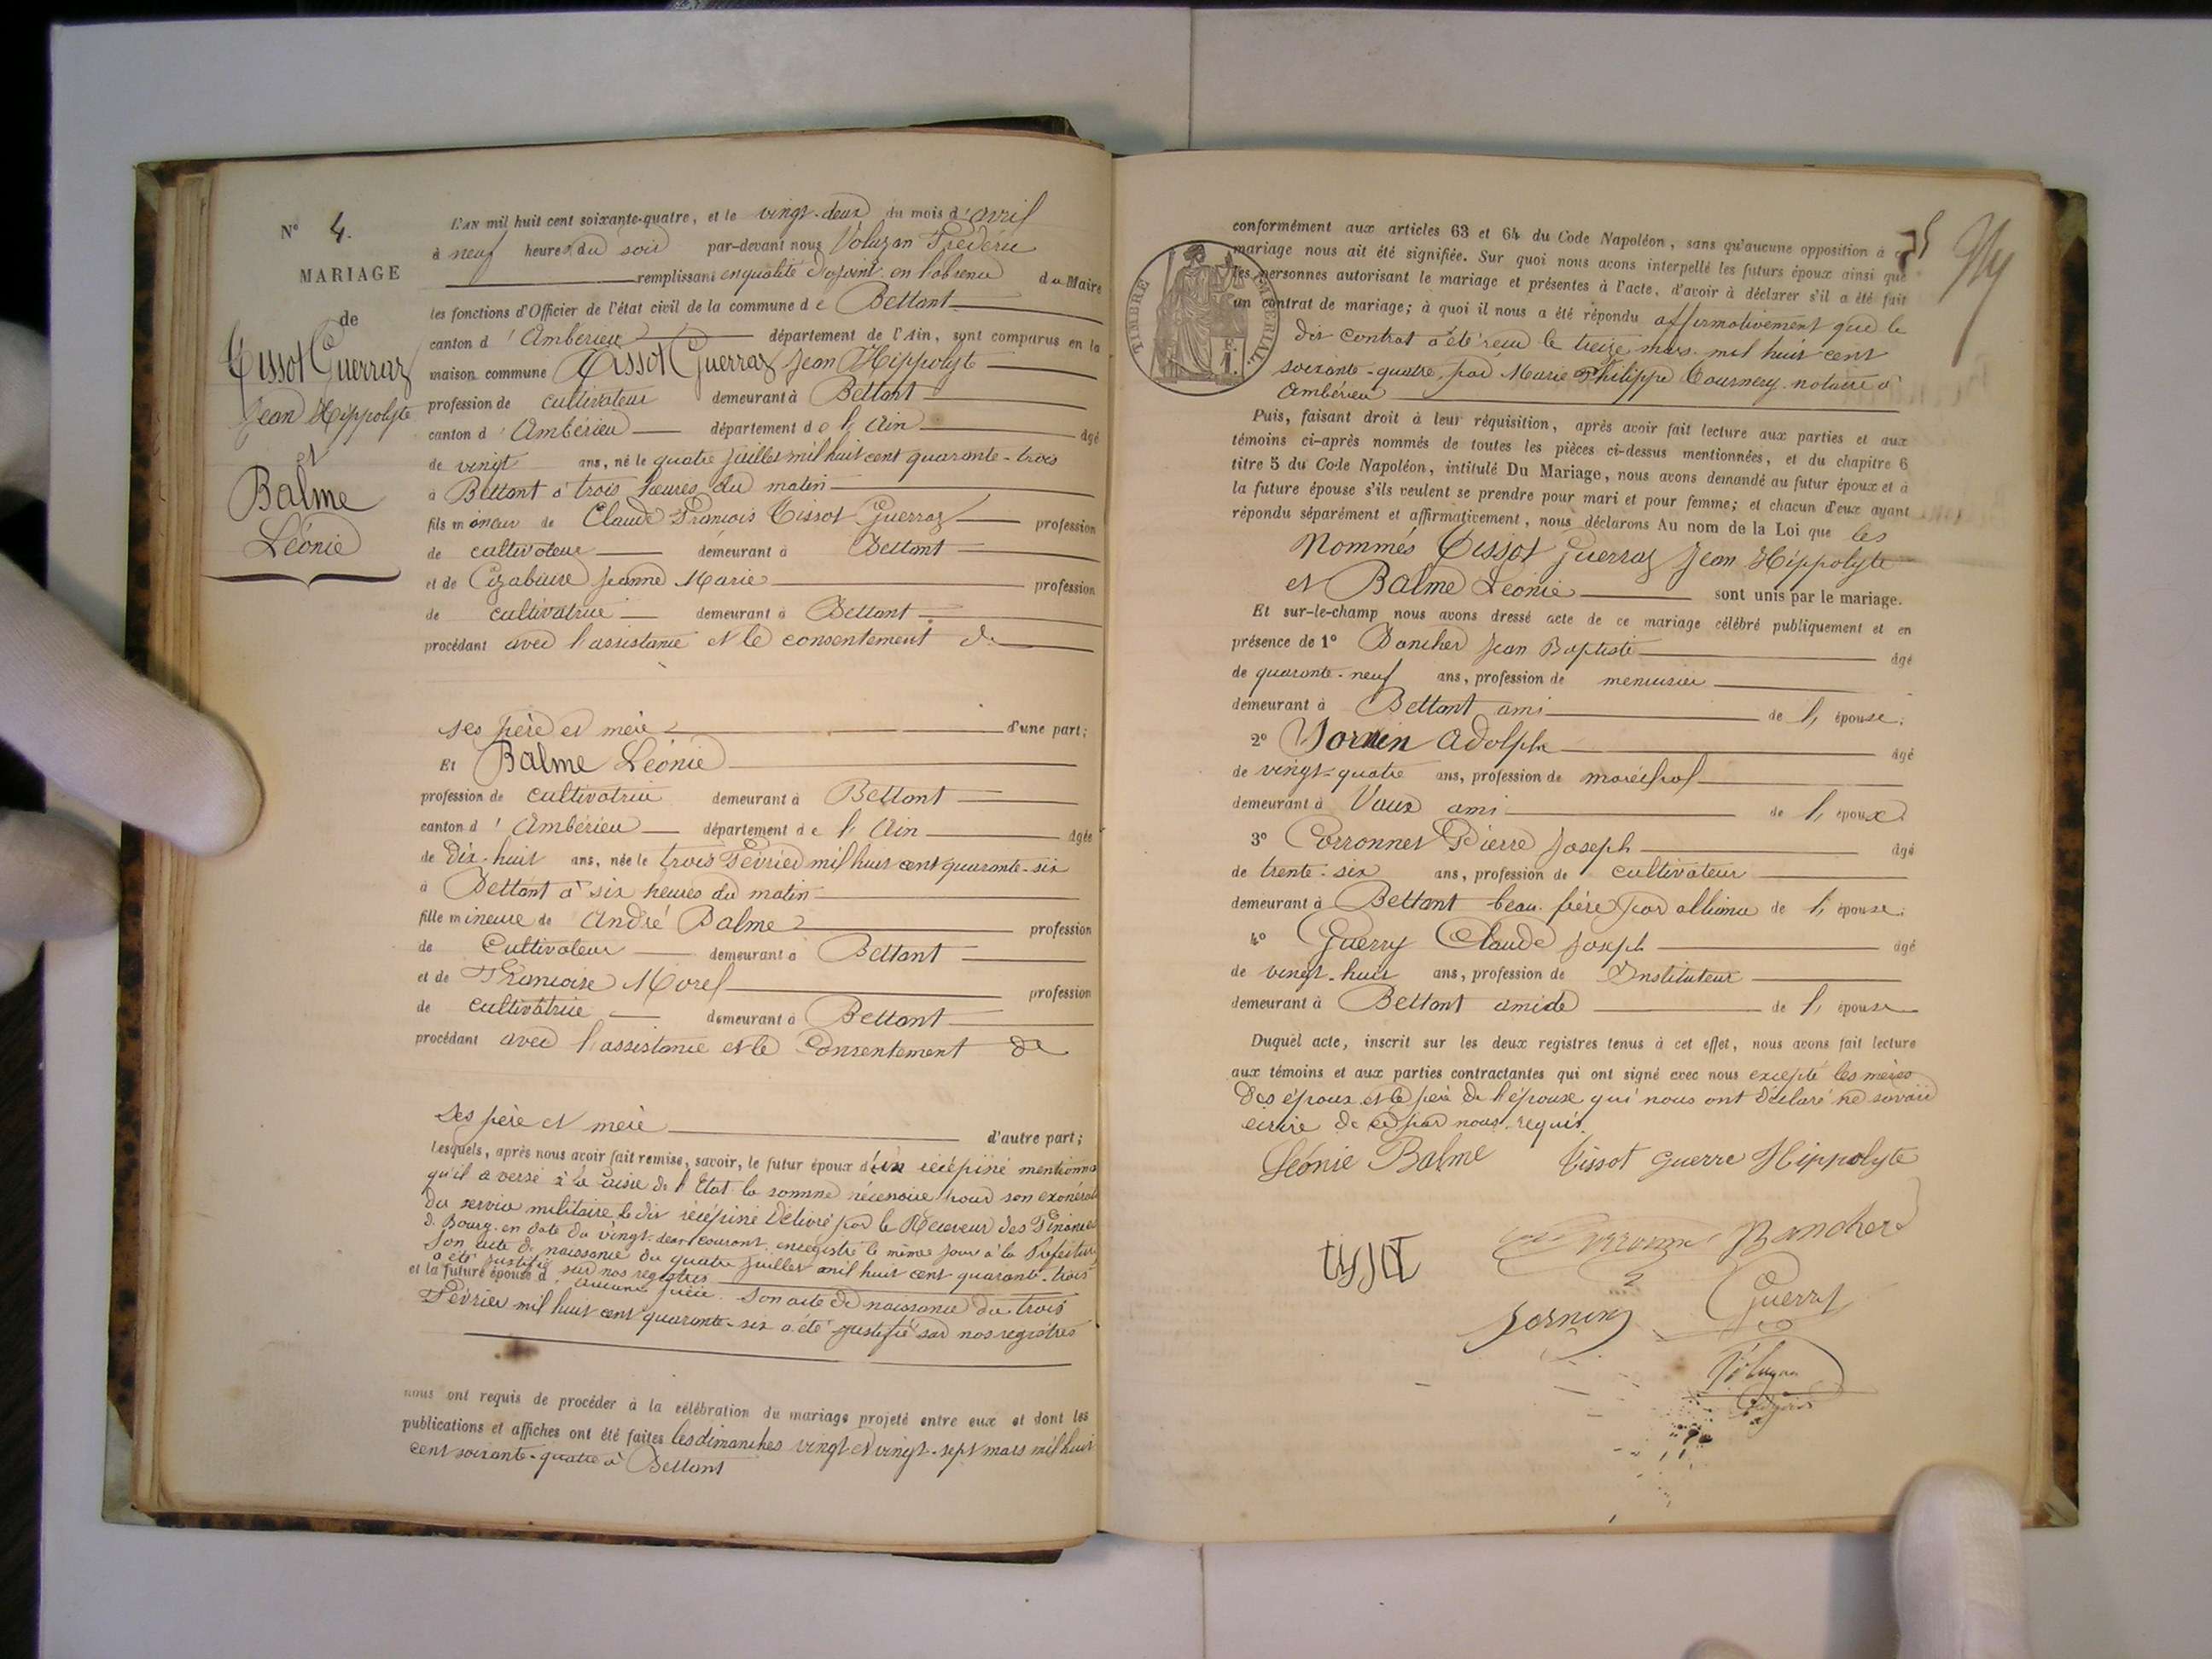 N° 4.
MARIAGE
de
Tissot Guerraz
Jean Hippolyte
et
Balme
Léonie
L'AN mil huit cent soixante-quatre, et le vingt-deux du mois d'avril
à neuf heures du soir par-devant nous Voluzan Frédéric
remplissant en qualité d'ajoint en l'absence du Maire
les fonctions d'Officier de l'état civil de la commune de Bettant
canton d'Ambérieu département de l'Ain, sont comparus en la
maison commune Tissot Guerraz Jean Hippolyte
profession de cultivateur demeurant à Bettant
canton d'Ambérieu département de l'Ain âgé
de vingt ans, né le quatre juillet mil huit cent quarante-trois
à Bettant à trois heures du matin
fils mineur de Claude François Tissot Guerraz profession
de cultivateur demeurant à Bettant
et de Jeanne Marie profession
de cultivatrice demeurant à Bettant
procédant avec l'assistance et le consentement de
ses père et mère d'une part;
Et Balme Léonie
profession de cultivatrice demeurant à Bettant
canton d'Ambérieu département de l'Ain âgée
de dix-huit ans, née le trois Février mil huit cent quarante-six
à Bettant à six heures du matin
fille mineure de André Balme profession
de Cultivateur demeurant à Bettant
et de Françoise Morel profession
de cultivatrice demeurant à Bettant
procédant avec l'assistance et le Consentement de
Ses père et mère d'autre part;
lesquels, après nous avoir fait remise, savoir, le futur époux d'un récépissé mentionnant
qu'il a versé à la caisse de l'Etat la somme nécessaire pour son exonération
du service militaire le dit récépissé délivré par le Receveur des Finances
de Bourg en date du vingt-deux courant enregistré le même jour à la Préfecture
Son acte de naissance du quatre juillet mil huit cent quarante-trois
a été justifié sur nos registres
et la future épouse d'aucune pièce. Son acte de naissance du trois
Février mil huit cent quarante-six a été justifié sur nos registres
nous ont requis de procéder à la célébration du mariage projeté entre eux et dont les
publications et affiches ont été faites les dimanches vingt et vingt-sept mars mil huit
cent soixante-quatre à Bettant
TIMBRE IMPÉRIAL
conformément aux articles 63 et 64 du Code Napoléon, sans qu'aucune opposition à ce
mariage nous ait été signifiée. Sur quoi nous avons interpellé les futurs époux ainsi que
les personnes autorisant le mariage et présentes à l'acte, d'avoir à déclarer s'il a été fait
un contrat de mariage; à quoi il nous a été répondu affirmativement que le
dit contrat a été reçu le treize mars mil huit cent
soixante-quatre, par Marie Philippe Tournery notaire à
Ambérieu
Puis, faisant droit à leur réquisition, après avoir fait lecture aux parties et aux
témoins ci-après nommés de toutes les pièces ci-dessus mentionnées, et du chapitre 6
titre 5 du Code Napoléon, intitulé Du Mariage, nous avons demandé au futur époux et à
la future épouse s'ils veulent se prendre pour mari et pour femme; et chacun d'eux ayant
répondu séparément et affirmativement, nous déclarons Au nom de la Loi que les
Nommés Tissot Guerraz Jean Hippolyte
et Balme Léonie sont unis par le mariage.
Et sur-le-champ nous avons dressé acte de ce mariage célébré publiquement et en
présence de 1° Bancher Jean Baptiste âgé
de quarante-neuf ans, profession de menuisier
demeurant à Bettant ami de l'épouse;
2° Jornin Adolphe âgé
de vingt-quatre ans, profession de maréchal
demeurant à Vaux ami de l'époux
3° Corronnet Pierre Joseph âgé
de trente-six ans, profession de cultivateur
demeurant à Bettant beau-frère par alliance de l'épouse;
4° Guerry Claude Joseph âgé
de vingt-huit ans, profession de Instituteur
demeurant à Bettant ami de de l'épouse
Duquel acte, inscrit sur les deux registres tenus à cet effet, nous avons fait lecture
aux témoins et aux parties contractantes qui ont signé avec nous excepté les mères
des époux et le père de l'épouse qui nous ont déclaré ne savoir
écrire de ce par nous requis.
Léonie Balme Tissot Guerre Hippolyte
Bancher
tissot
Guerry
Jornin